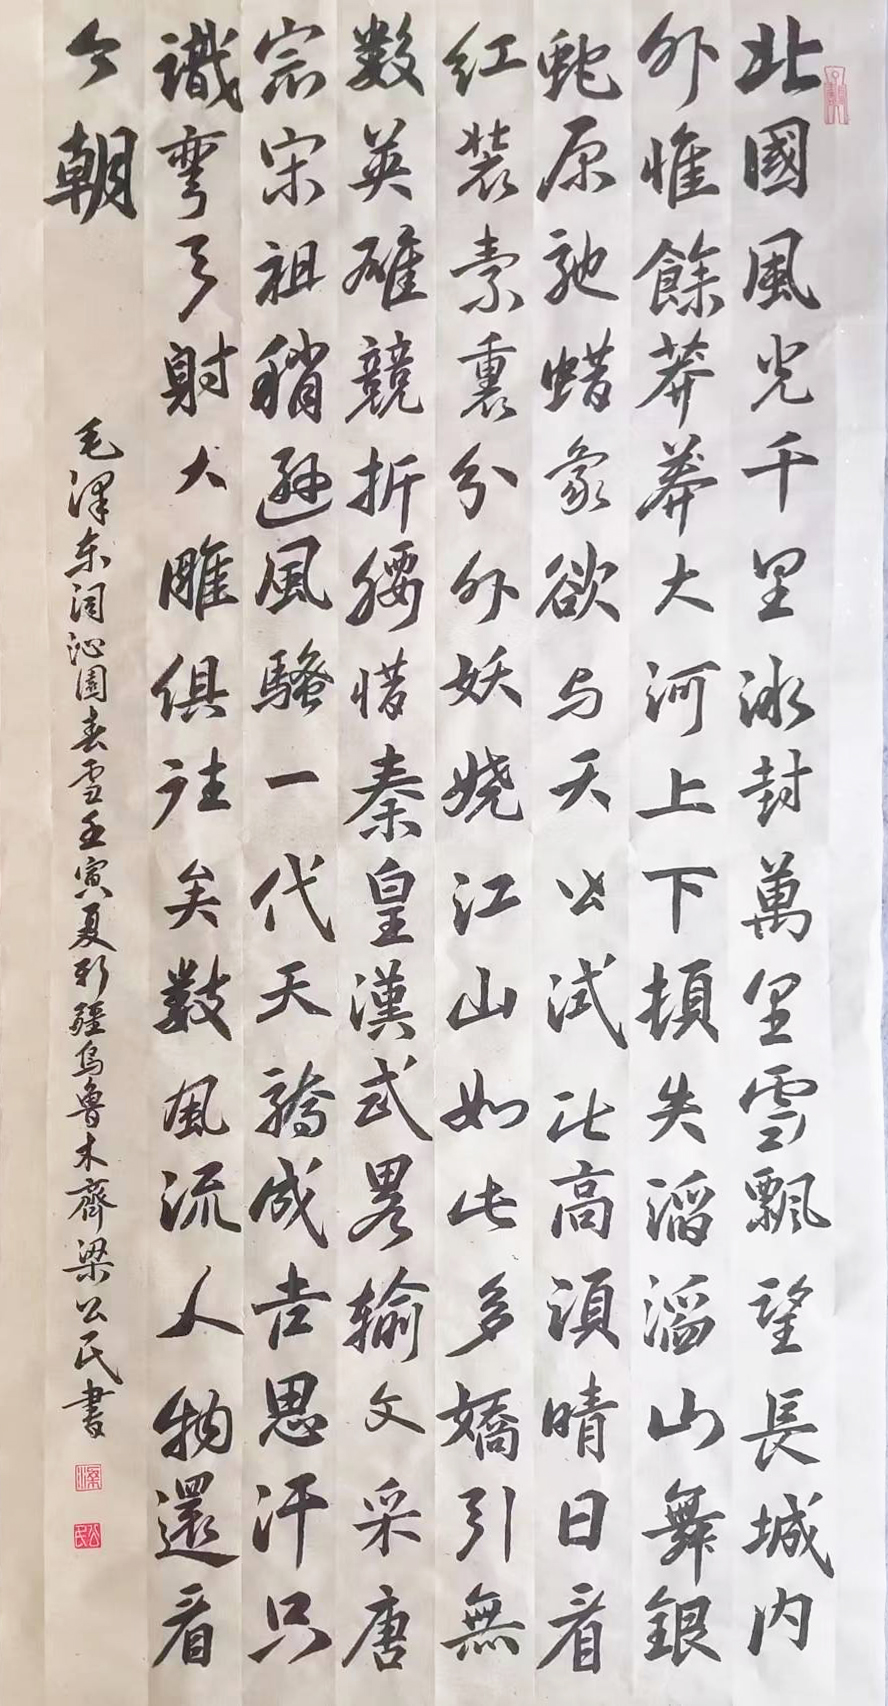 北國風光千里冰封萬里雪飄望長城内
外惟餘莽莽大河上下頓失滔滔山舞銀
蛇原馳蜡象欲与天公試比高須晴日看
红装素裹分外妖娆江山如此多嬌引無
数英雄競折腰惜秦皇漢武畧输文采唐
宗宋祖稍遜風騷一代天驕成吉思汗只
識彎弓射大雕俱往矣數風流人物還看
今朝
毛泽东词沁園春雪壬寅夏新疆乌鲁木齊梁公民書